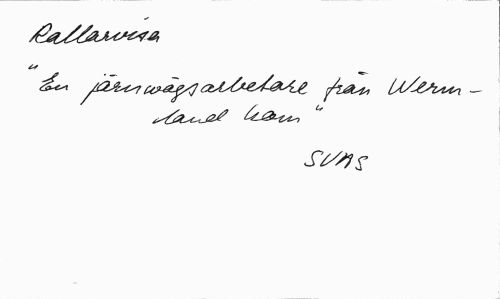 Rallarvisa
"En järnwägsarbetare från Werm-
land kom"
SVAS